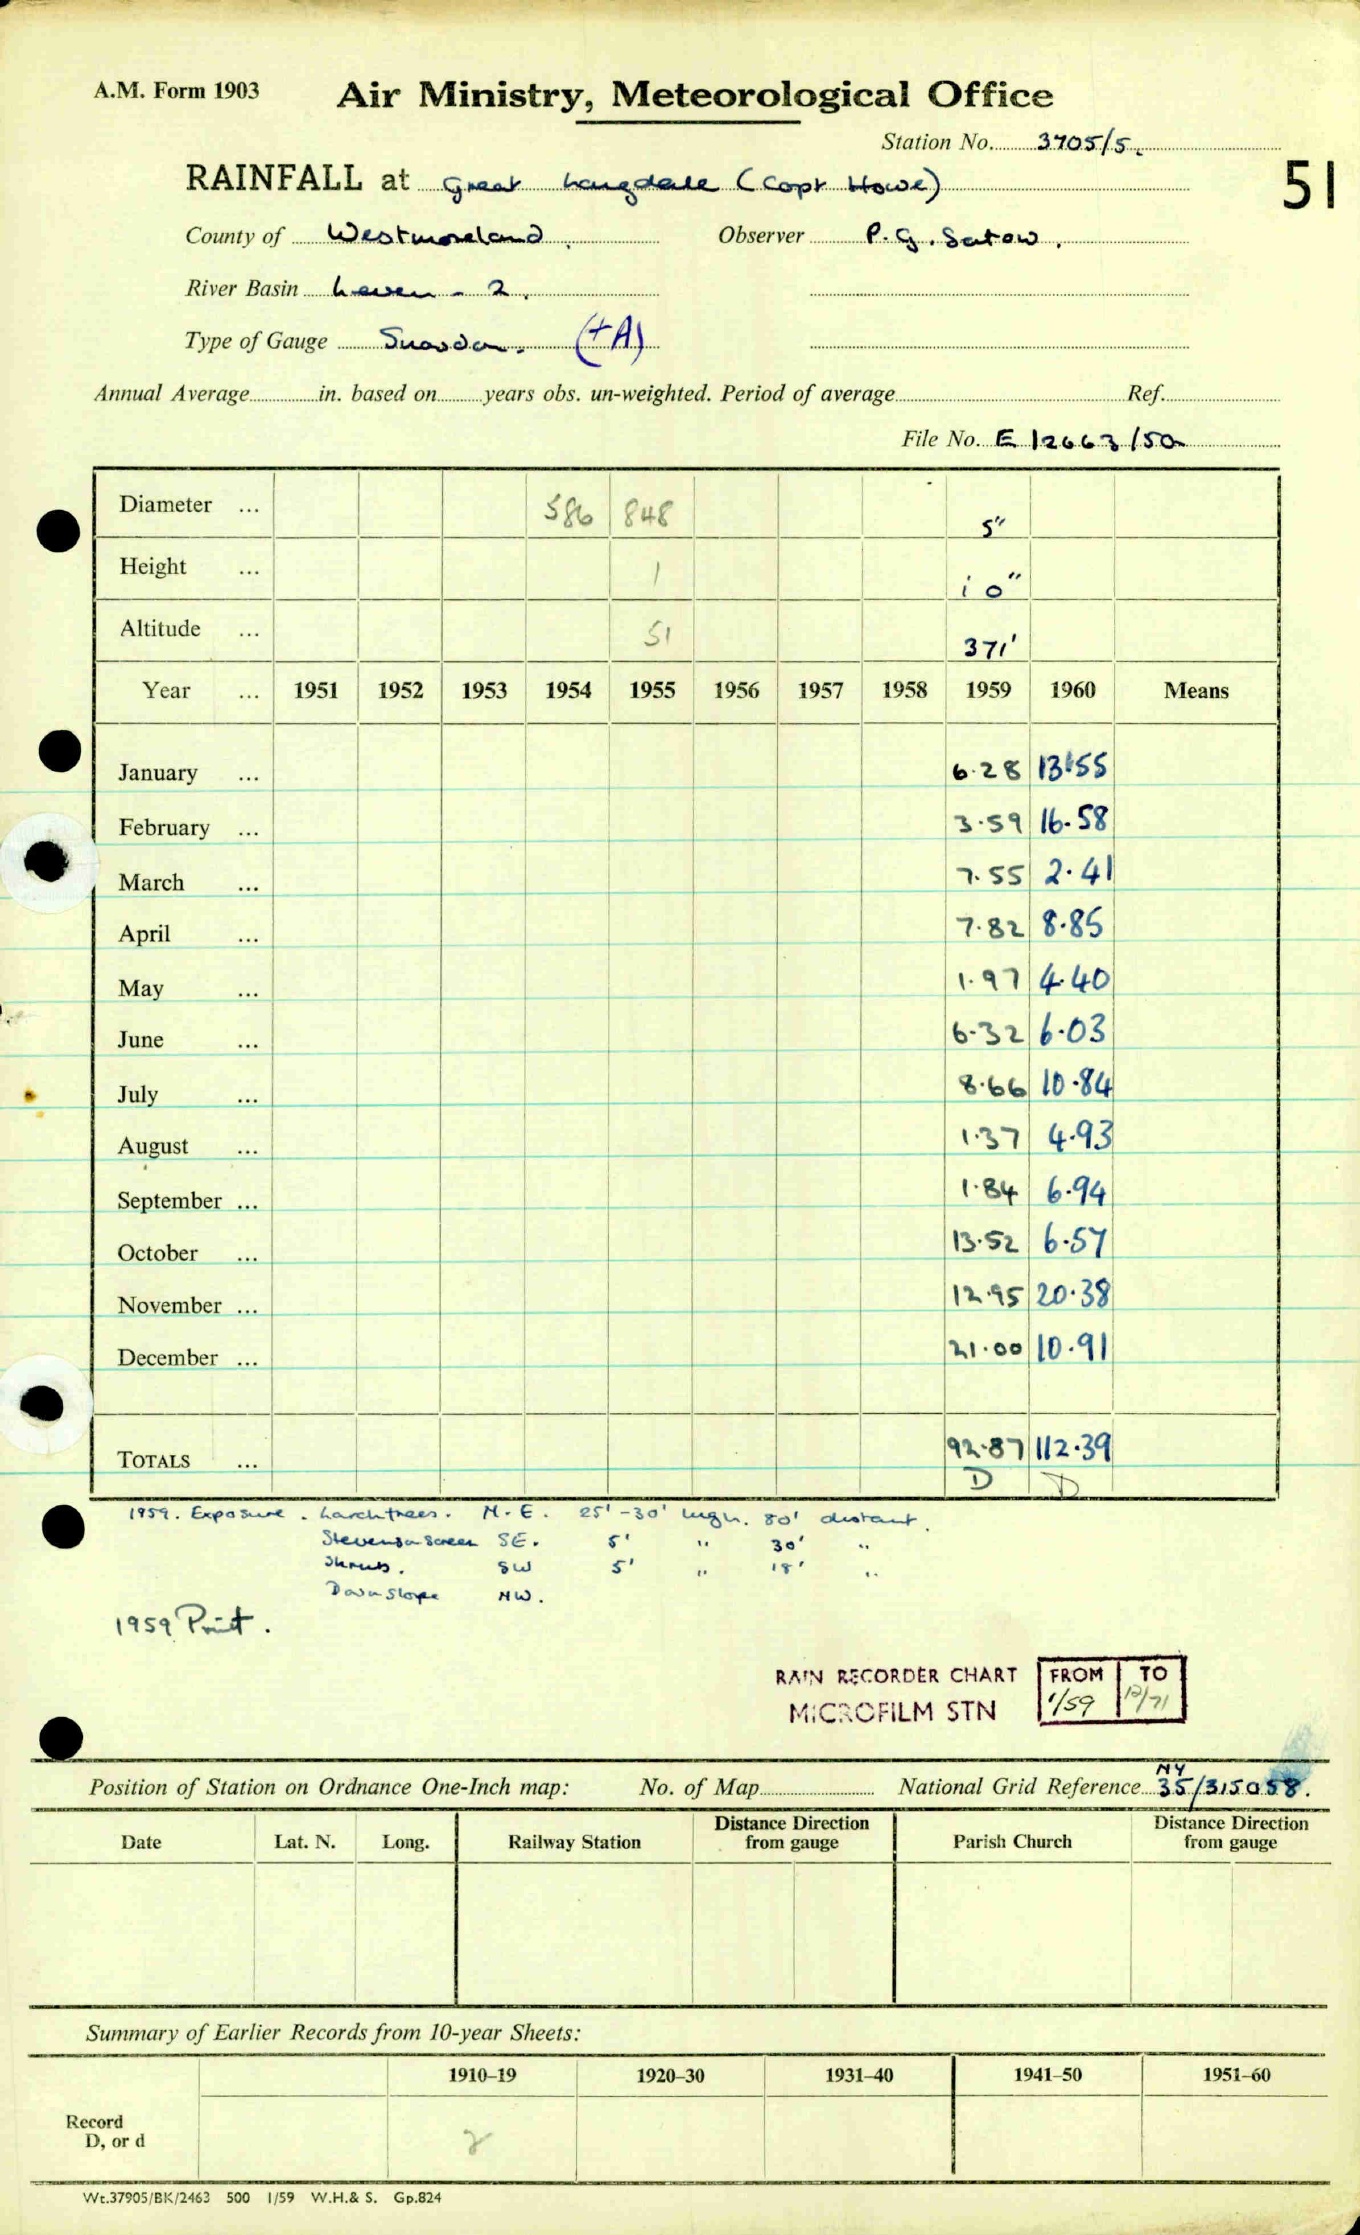 A.M. Form 1903 Air Ministry, Meteorological Office
Station No. 3705/5.
51
RAINFALL at Great Langdale (Copt Howe)
County of Westmoreland. Observer P.G. Satow.
River Basin Leven - 2.
Type of Gauge Snowdon. (+A)
Annual Average in. based on years obs. un-weighted. Period of average Ref.
File No. E 12663/50
Diameter ... 586 848 5"
Height ... 1 1 0"
Altitude ... 51 371'
Year ... 1951 1952 1953 1954 1955 1956 1957 1958 1959 1960 Means
January ... 6.28 13.55
February ... 3.59 16.58
March ... 7.55 2.41
April ... 7.82 8.85
May ... 1.97 4.40
June ... 6.32 6.03
July ... 8.66 10.84
August ... 1.37 4.93
September ... 1.84 6.94
October ... 13.52 6.57
November ... 12.95 20.38
December ... 21.00 10.91
TOTALS ... 92.87 112.39
D D
1959. Exposure. Larch trees. N.E. 25'-30' high. 80' distant.
Stevenson Screen SE. 5' " 30' "
Shrub. SW 5' " 18' "
Down Slope NW.
1959 Print.
RAIN RECORDER CHART FROM TO
MICROFILM STN 1/59 12/71
NY
Position of Station on Ordnance One-Inch map: No. of Map National Grid Reference 35/315058.
Date Lat. N. Long. Railway Station Distance Direction from gauge Parish Church Distance Direction from gauge
Summary of Earlier Records from 10-year Sheets:
1910–19 1920–30 1931–40 1941–50 1951–60
Record
D, or d
Wt.37905/BK/2463 500 1/59 W.H.& S. Gp.824